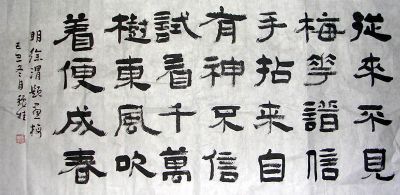 從來不見
梅華譜信
手拈来自
有神不信
試看千萬
樹東風吹
着便成春
明徐渭題画梅
己丑冬月